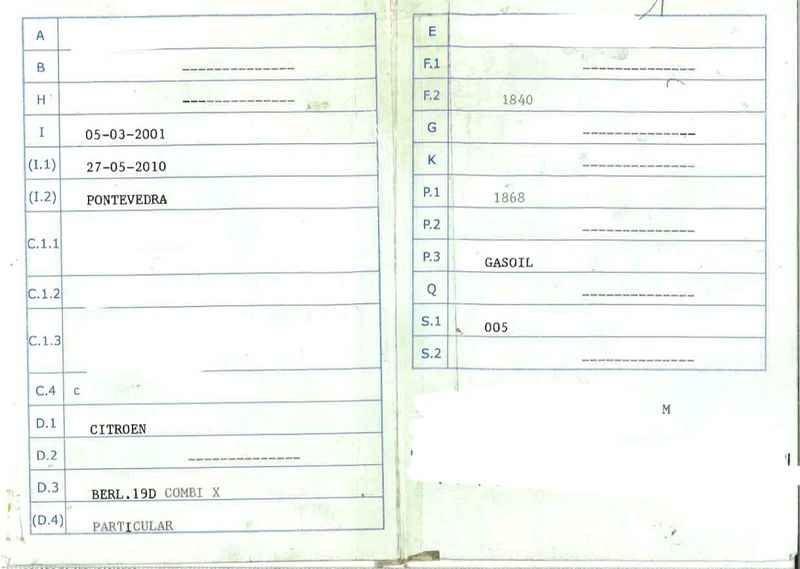 A
B --------------
H --------------
I 05-03-2001
(I.1) 27-05-2010
(I.2) PONTEVEDRA
C.1.1
C.1.2
C.1.3
C.4 c
D.1 CITROEN
D.2 --------------
D.3 BERL.19D COMBI X
(D.4) PARTICULAR
E
F.1 --------------
F.2 1840
G --------------
K --------------
P.1 1868
P.2 --------------
P.3 GASOIL
Q --------------
S.1 005
S.2 --------------
M